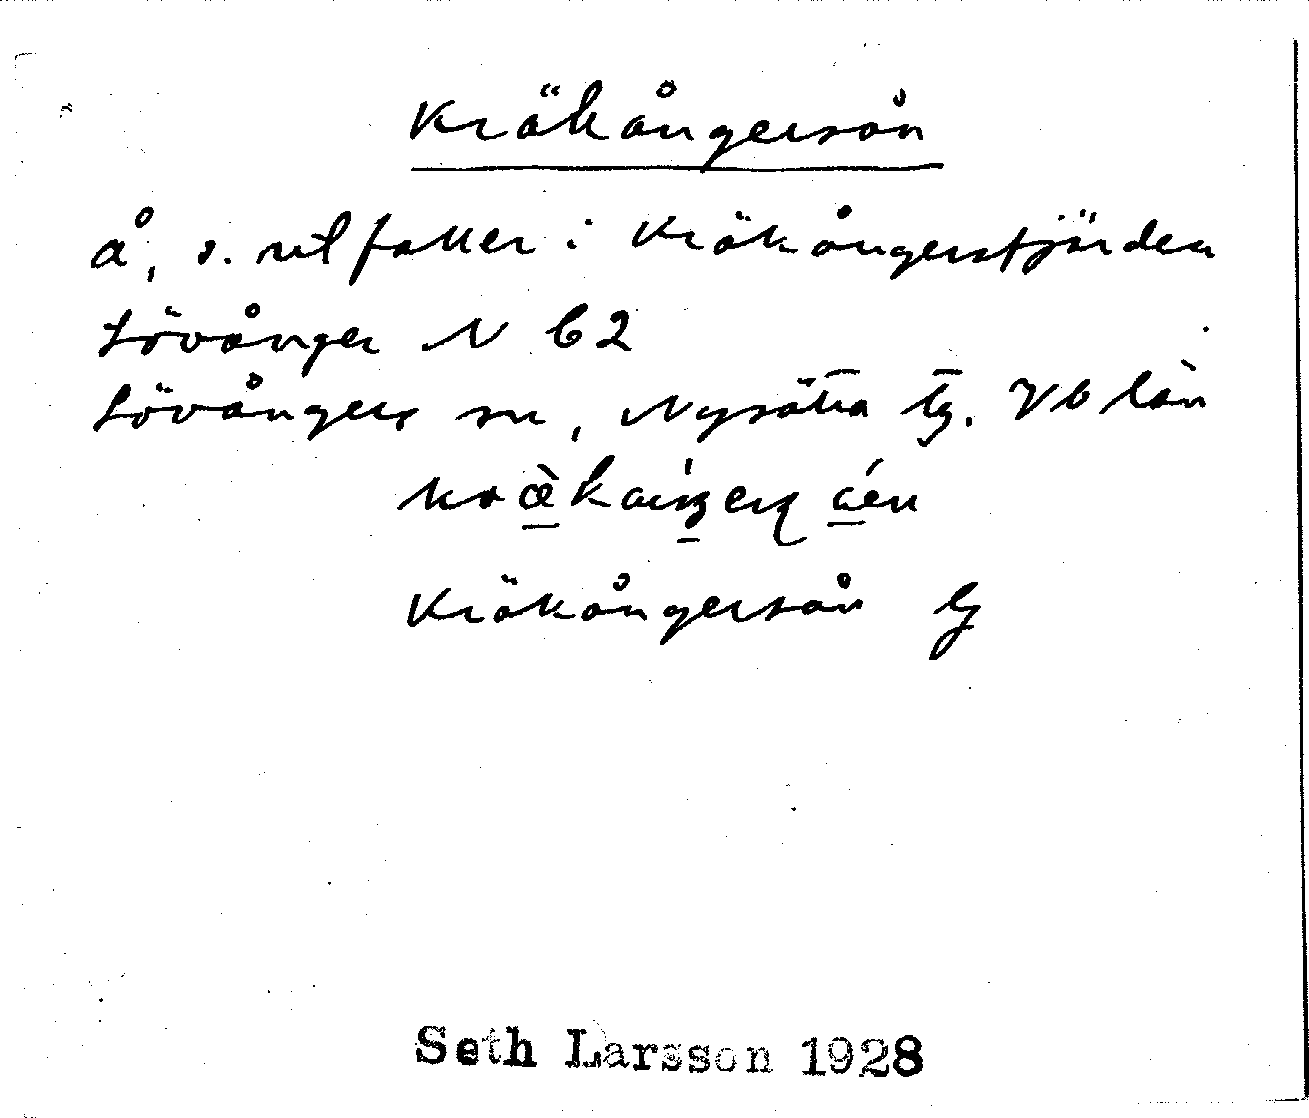 Kräkångersån
å, s. utfaller i Kräkångersfjärden
Lövånger N b2
Lövångers sn, Nysätra tg. Vb län
Kräkångersån
Seth Larsson 1928